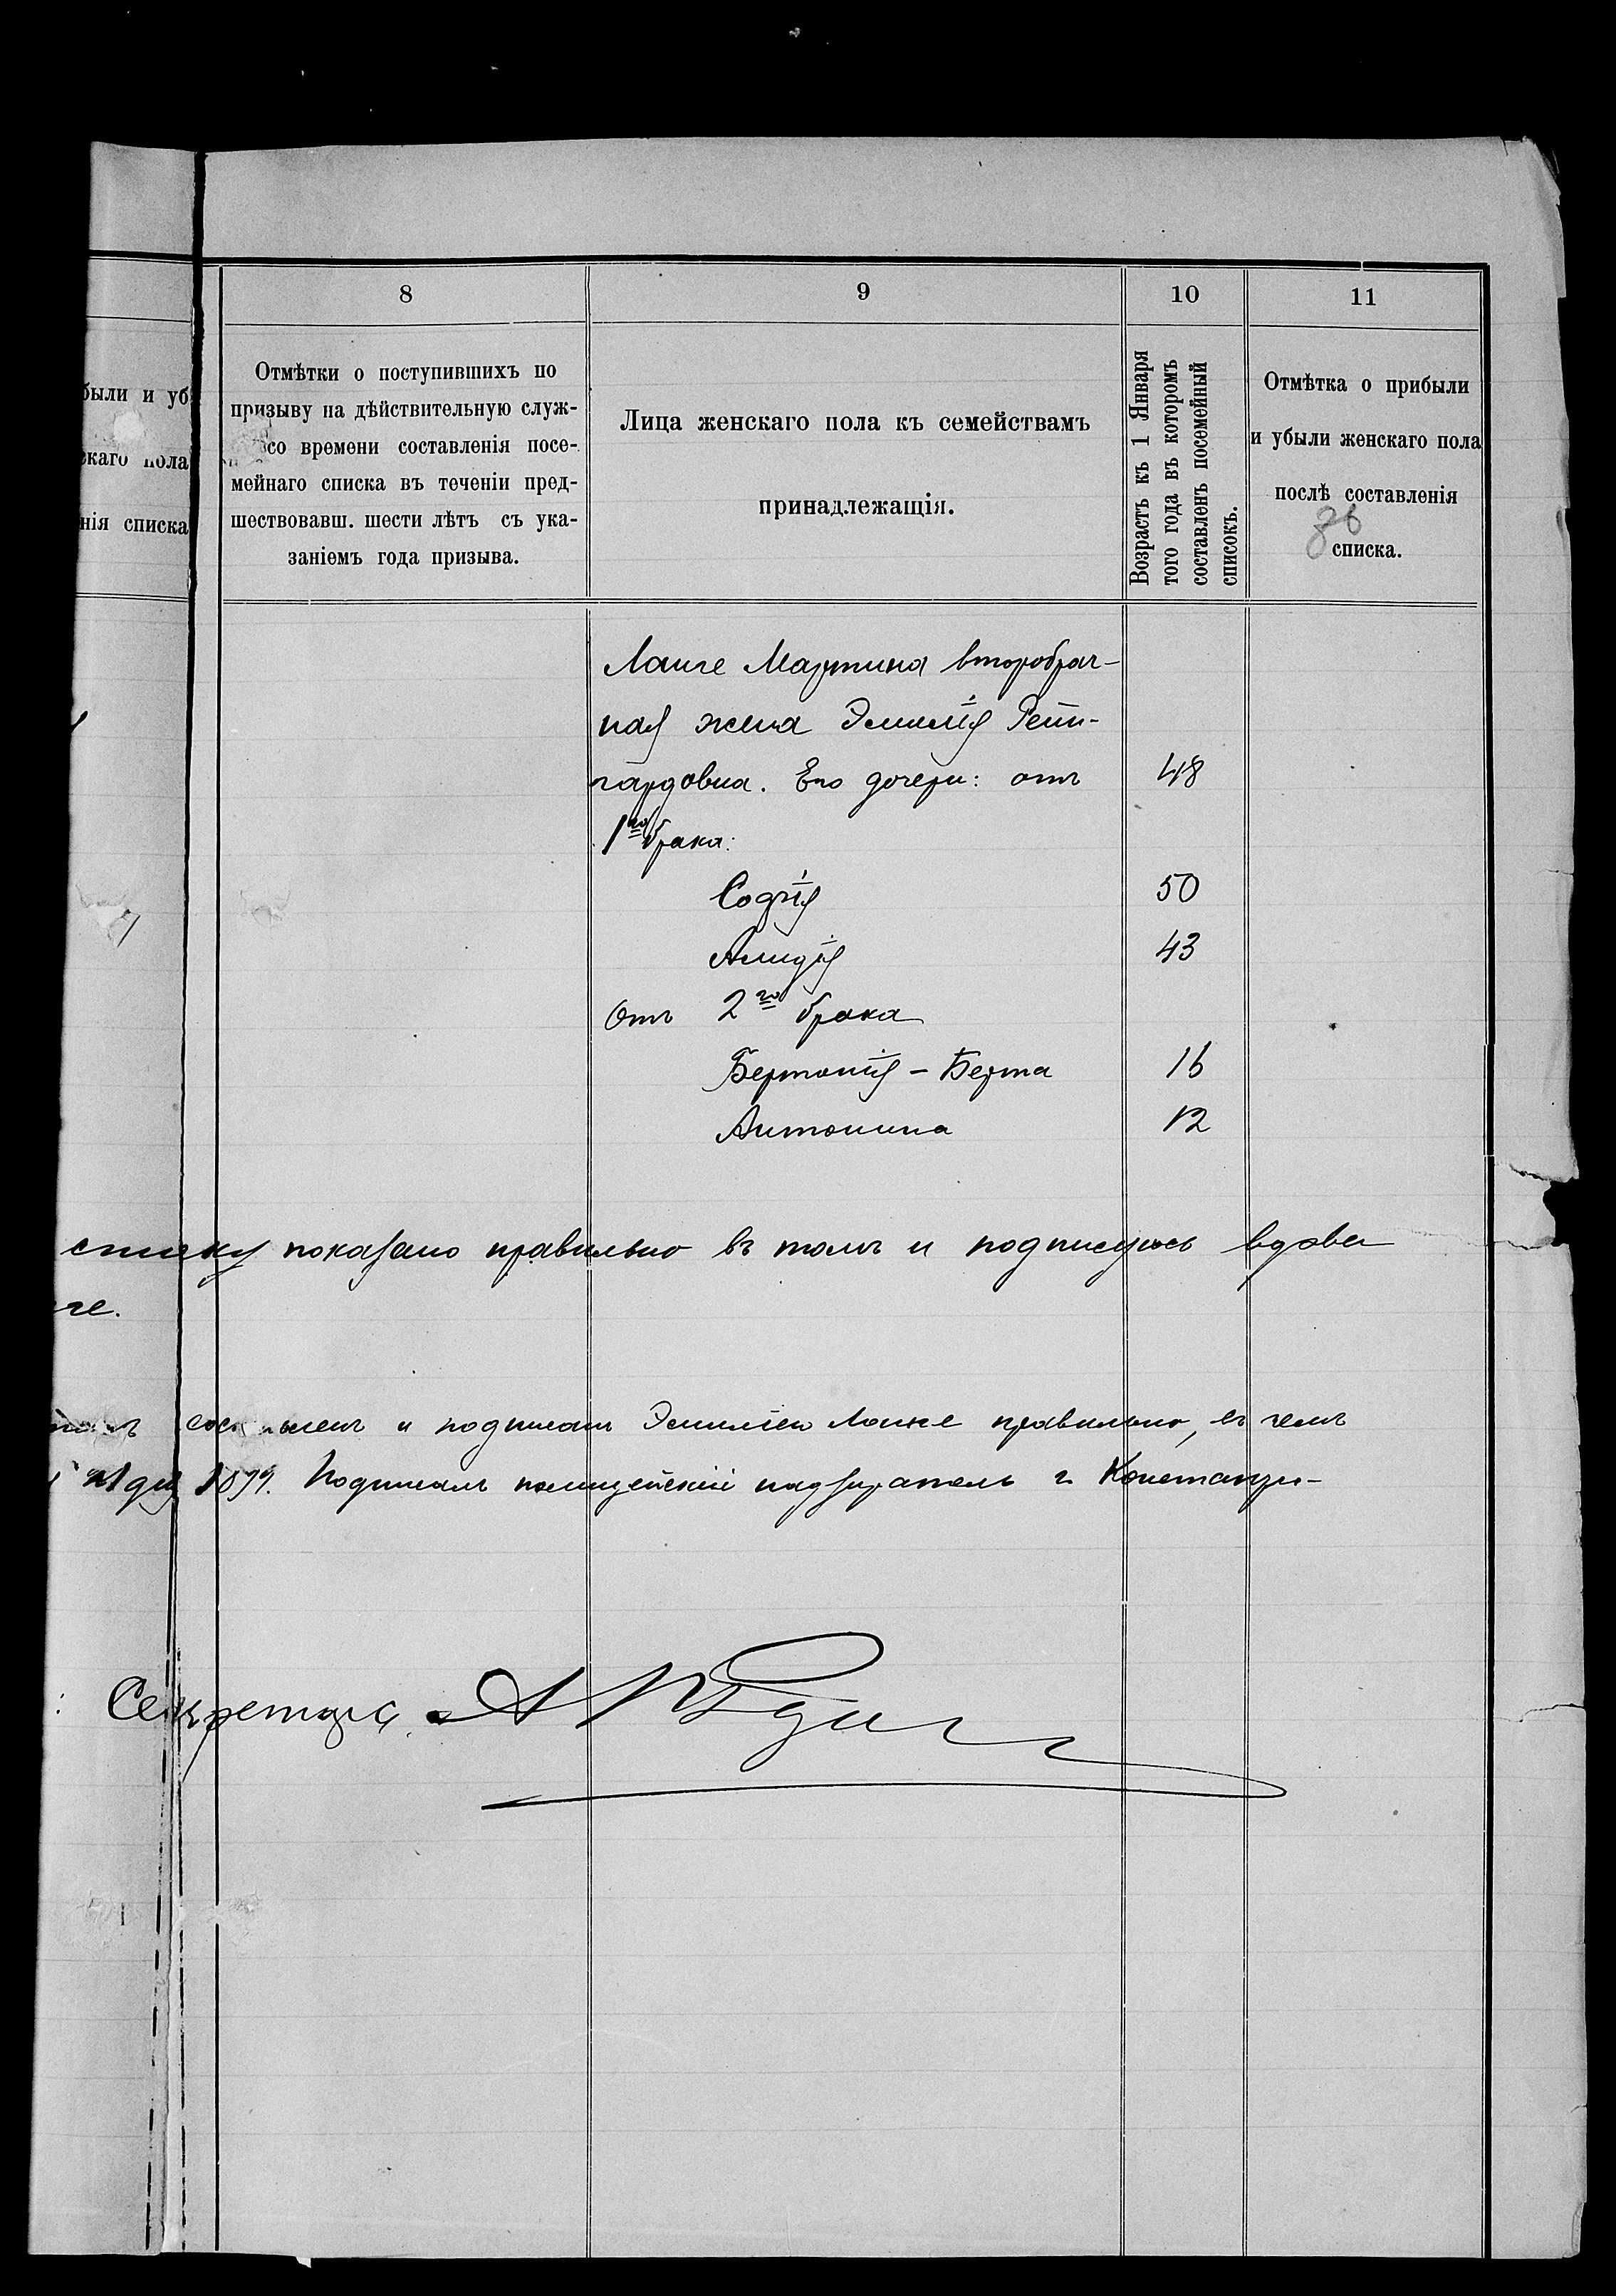 8
9
10
11
были и уб
скаго пола
нія списка
Отмѣтки о поступившихъ по
призыву на дѣйствительную служ-
со времени составленія посе-
мейнаго списка въ теченіи пред-
шествовавш. шести лѣтъ съ ука-
заніемъ года призыва.
Лица женскаго пола къ семействамъ
принадлежащія.
Возрастъ къ 1 Января
того года въ которомъ
составленъ посемейный
списокъ.
Отмѣтка о прибыли
и убыли женскаго пола
послѣ составленія
списка.
Ланге Мартина второбрач-
ная жена Эмилія Рейн-
гардовна. Его дочери: отъ 48
1го брака:
Софія 50
Алидія 43
Отъ 2го брака
Бертонія - Берта 16
Антонина 12
списку показано правильно въ томъ и подписуюсь вдова
ге.
составленъ и подписанъ Эмиліею Ланге правильно, въ чемъ
21 дня 1899. Подписалъ полицейскій надзиратель г. Константи-
Секретарь А